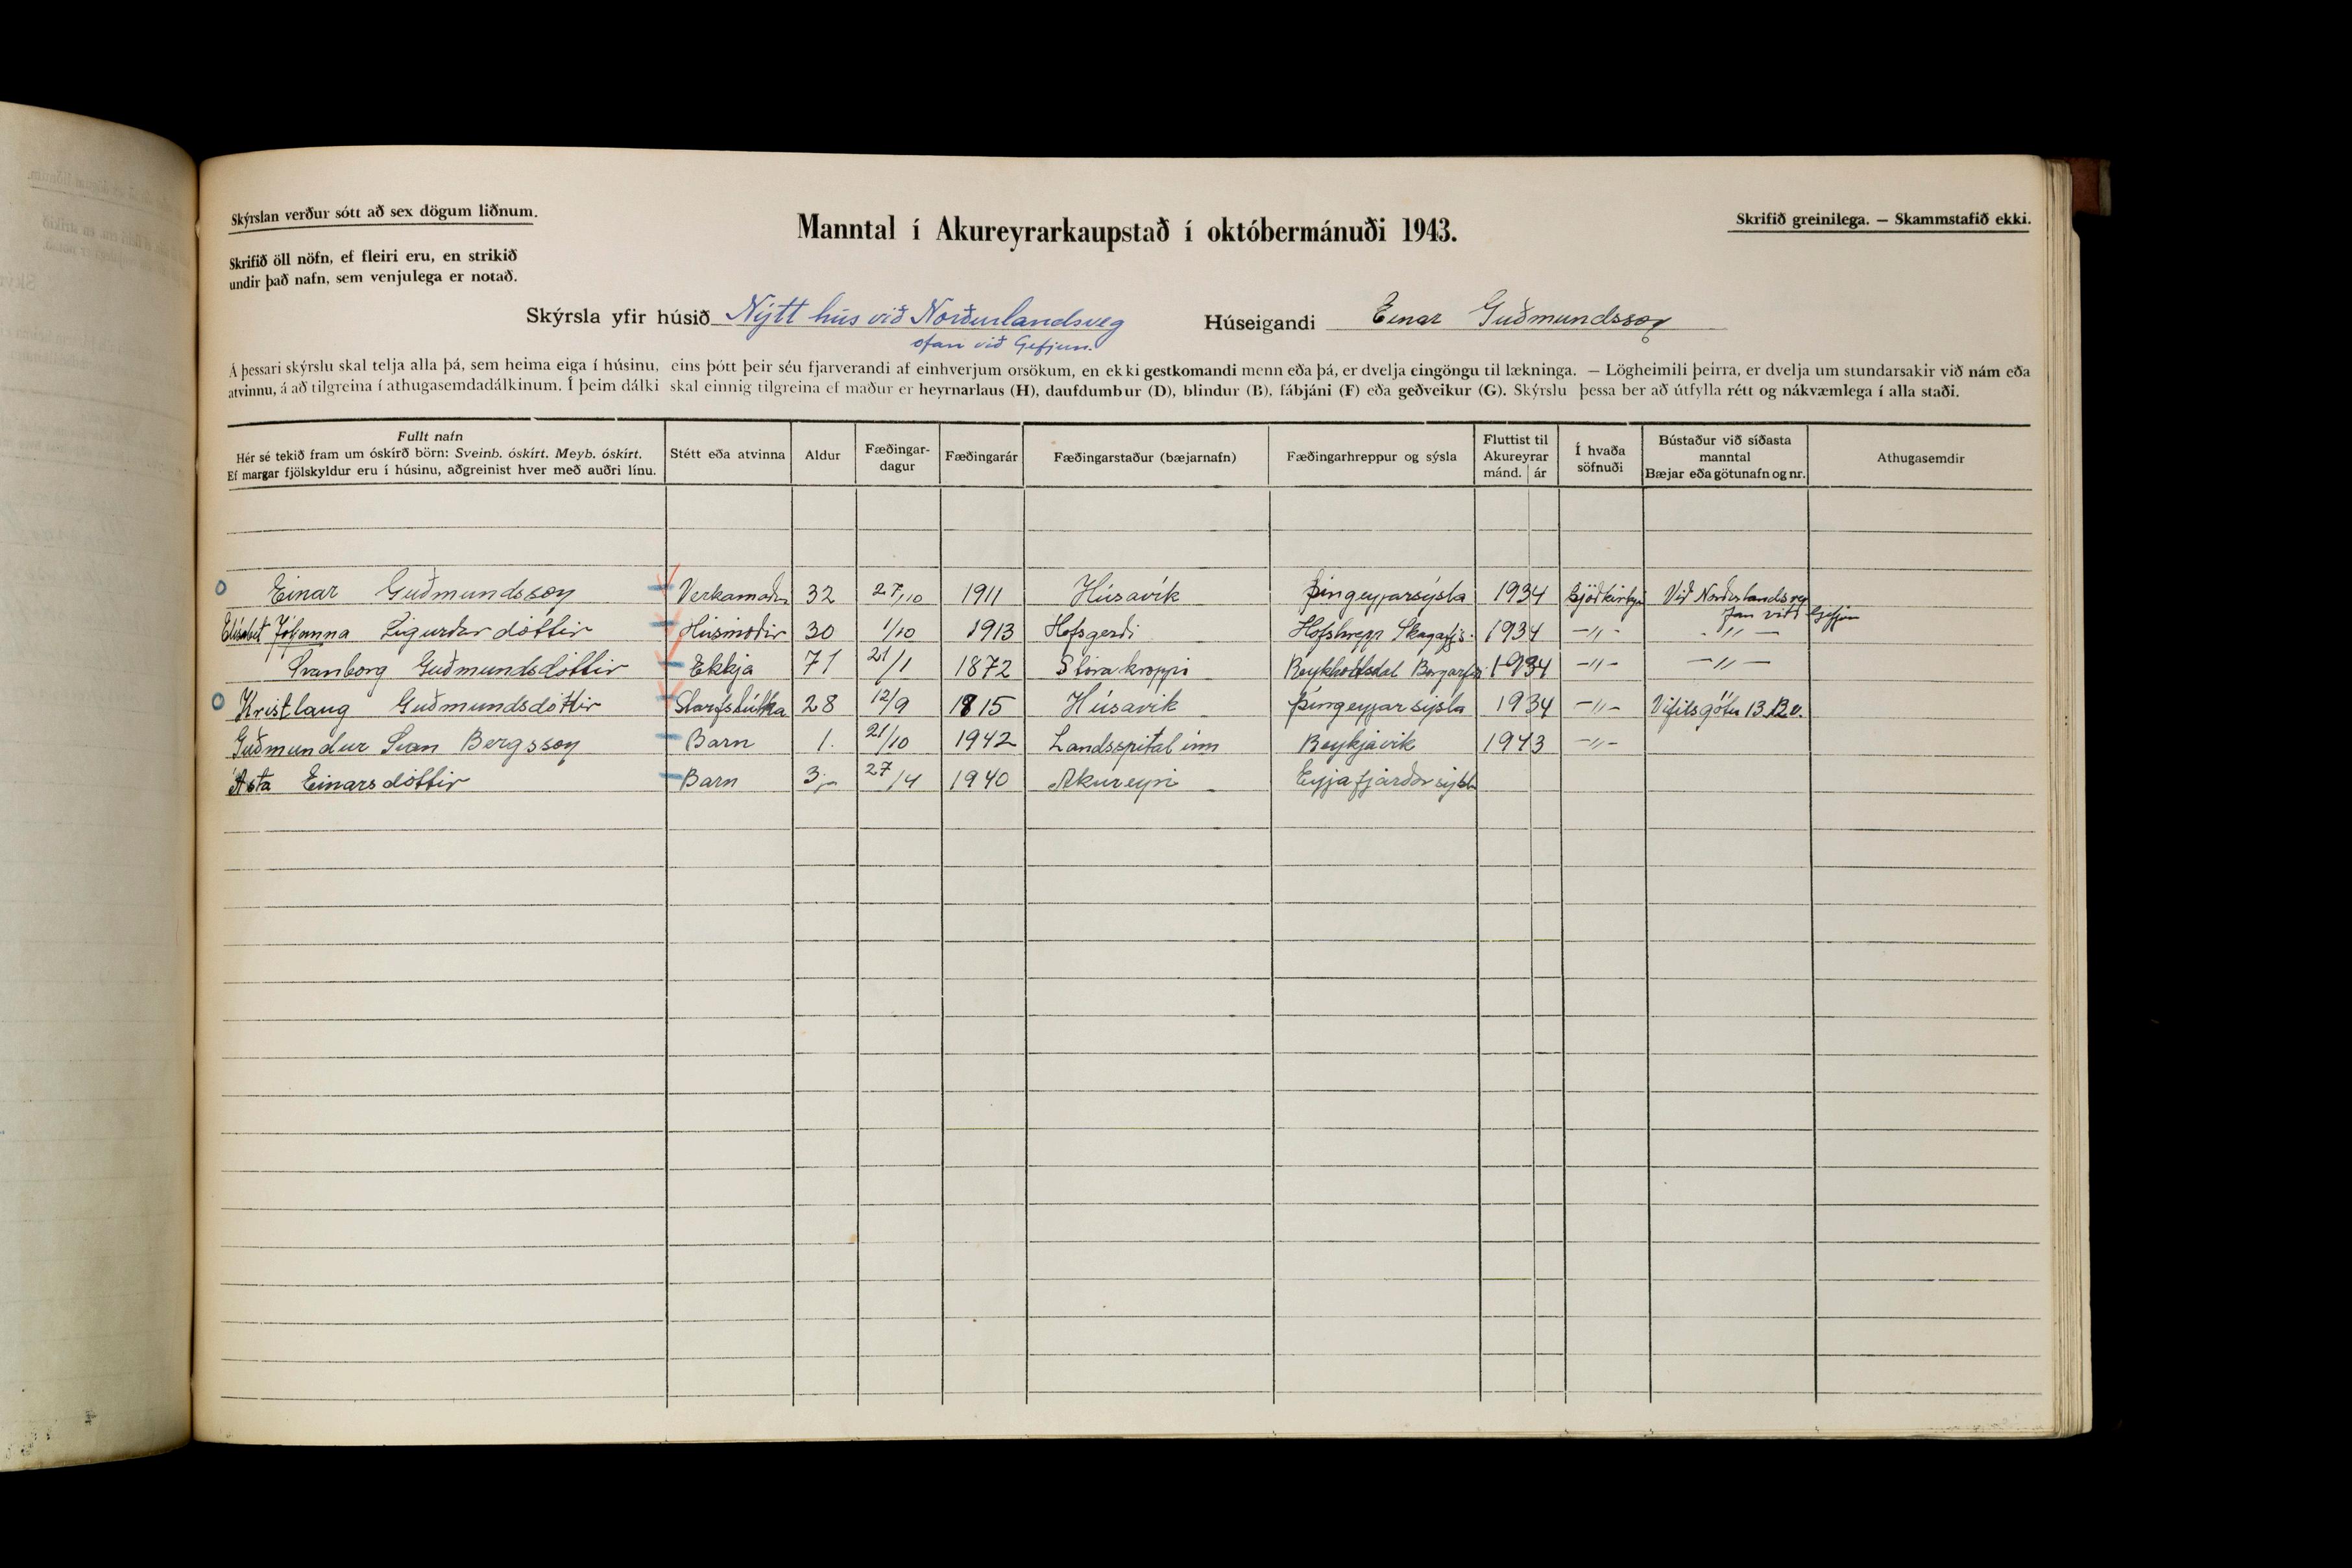 Skýrslan verður sótt að sex dögum liðnum.
Manntal í Akureyrarkaupstað í októbermánuði 1943.
Skrifið greinilega. — Skammstafið ekki.
Skrifið öll nöfn, ef fleiri eru, en strikið
undir það nafn, sem venjulega er notað.
Skýrsla yfir húsið Nýtt hús við Norðurlandsveg Húseigandi Einar Guðmundsson
ofan við Gefjun.
Á þessari skýrslu skal telja alla þá, sem heima eiga í húsinu, eins þótt þeir séu fjarverandi af einhverjum orsökum, en ekki gestkomandi menn eða þá, er dvelja eingöngu til lækninga. — Lögheimili þeirra, er dvelja um stundarsakir við nám eða
atvinnu, á að tilgreina í athugasemdadálkinum. Í þeim dálki skal einnig tilgreina ef maður er heyrnarlaus (H), daufdumbur (D), blindur (B), fábjáni (F) eða geðveikur (G). Skýrslu þessa ber að útfylla rétt og nákvæmlega í alla staði.
Fullt nafn
Hér sé tekið fram um óskírð börn: Sveinb. óskírt. Meyb. óskírt.
Ef margar fjölskyldur eru í húsinu, aðgreinist hver með auðri línu.
Stétt eða atvinna
Aldur
Fæðingar-
dagur
Fæðingarár
Fæðingarstaður (bæjarnafn)
Fæðingarhreppur og sýsla
Fluttist til
Akureyrar
mánd. ár
Í hvaða
söfnuði
Bústaður við síðasta
manntal
Bæjar eða götunafn og nr.
Athugasemdir
Einar Guðmundsson Verkamaður 32 27/10 1911 Húsavík Þingeyjarsýsla 1934 Við Norðurlandsveg
Gefjun
Elísabet Jóhanna Sigurðardóttir Húsmóðir 30 1/10 1913 Hofsgerði Hofshrepp Skagafjs. 1934 -"- -"-
Svanborg Guðmundsdóttir Ekkja 71 21/1 1872 Stóra-kroppi Reykholtsdal Borgarfj. 1934 -"- -"-
Kristlaug Guðmundsdóttir Starfstúlka 28 12/9 1815 Húsavík Þingeyjarsýsla 1934 -"- Vífilsgötu 13
Guðmundur Svan Bergsson Barn 1. 21/10 1942 Landsspítalinn Reykjavík 1943 -"-
Ásta Einarsdóttir Barn 3 27/4 1940 Akureyri Eyjafjarðarsýsla